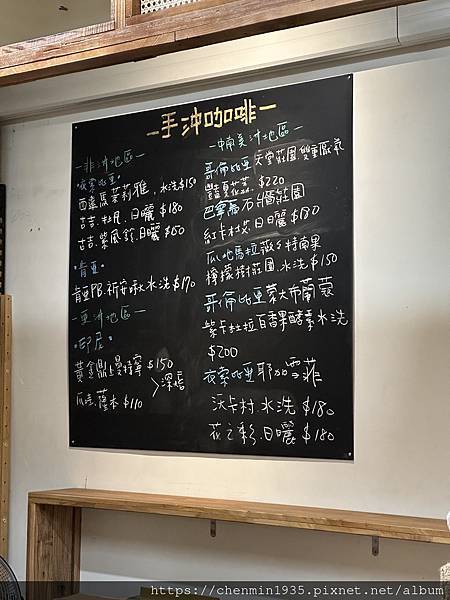 -手沖咖啡-
-非洲地區-
•衣索比亞•
西達馬茉莉雅.水洗$150
吉吉.杜凡.日曬$180
吉吉.紫風鈴.日曬$160
•肯亞•
肯亞PB.祈安布水洗$170
-亞洲地區-
•印尼•
黃金鼎上曼特寧 $150
>深焙
瓜哇.羅布 $110
-中南美洲地區-
哥倫比亞 天堂莊園.雙重厭氧
豔夏花蕊. $220
巴拿馬 石斛蘭莊園
紅卡杜艾.日曬$180
瓜地馬拉薇薇特南果
檸檬樹莊園.水洗$150
哥倫比亞 蒙大布蘭蔻
紫卡杜拉百香果酵素水洗
$200
衣索比亞耶加雪菲
沃卡村.水洗$180
花之彩.日曬$180
https://chenmin1935.pixnet.net/album